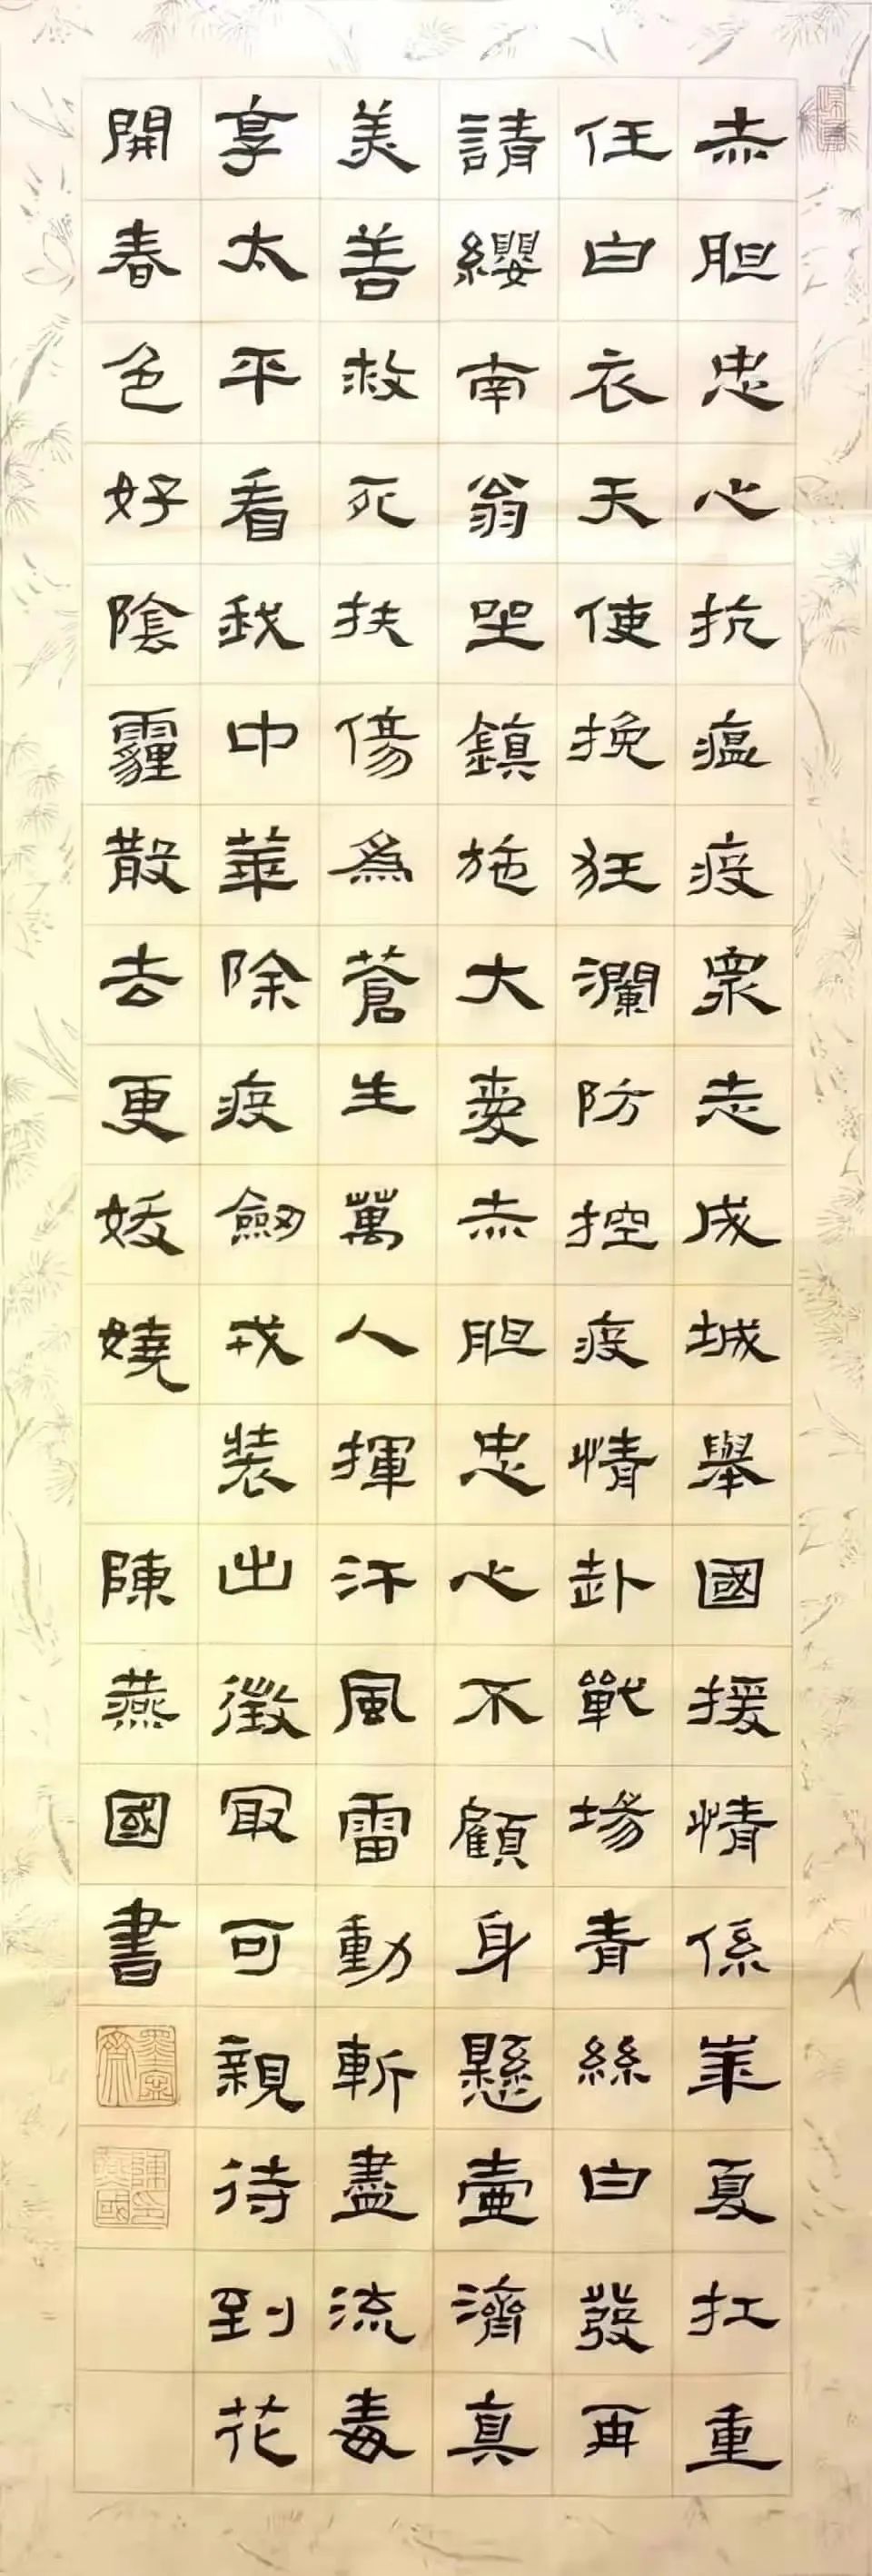 赤胆忠心抗瘟疫眾志成城舉國援情係華夏扛重
任白衣天使挽狂瀾防控疫情赴戰場青絲白發再
請纓南翁坐鎮施大愛赤胆忠心不顧身懸壺濟真
美善救死扶傷為蒼生萬人揮汗風雷動斬盡流毒
享太平看我中華除疫劍戎裝出徵最可親待到花
開春色好陰霾散去更妖嬈
陳燕國書
墨齋
陳燕國印